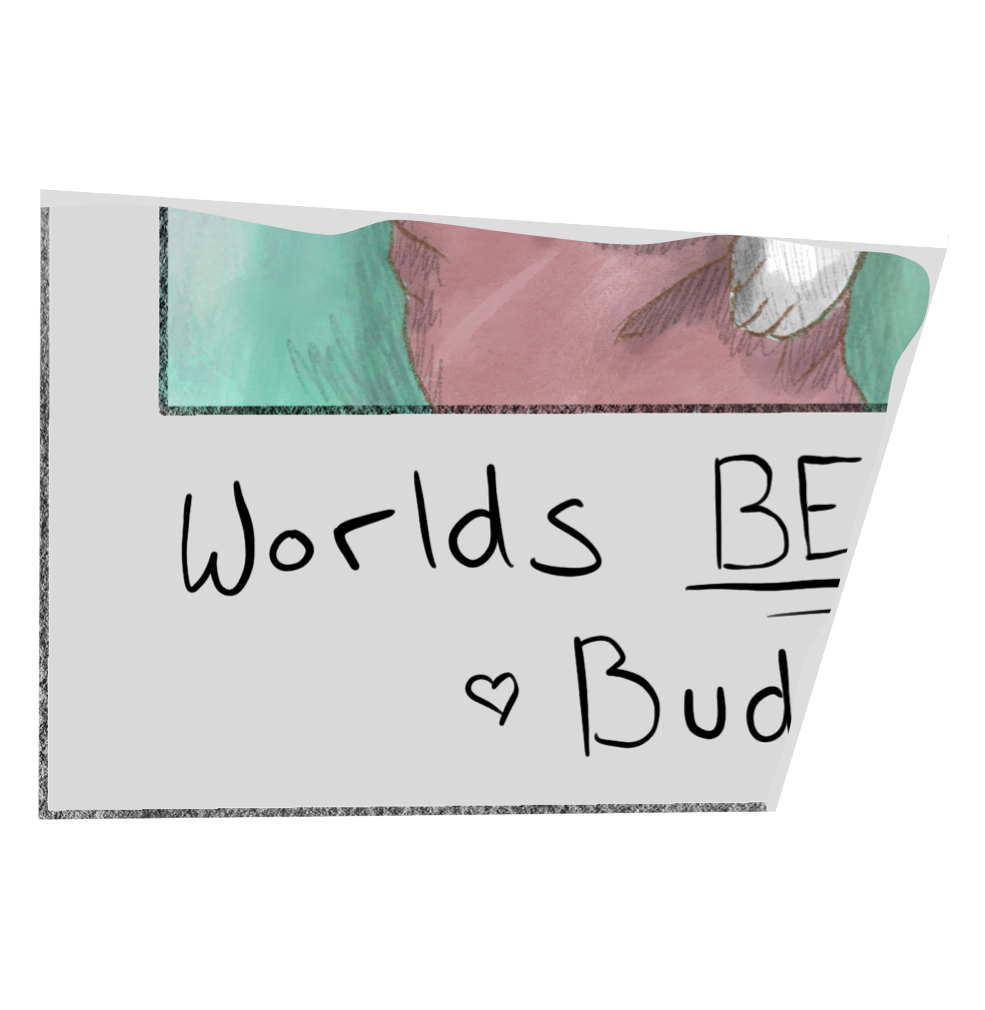 Worlds BE
♡ Bud